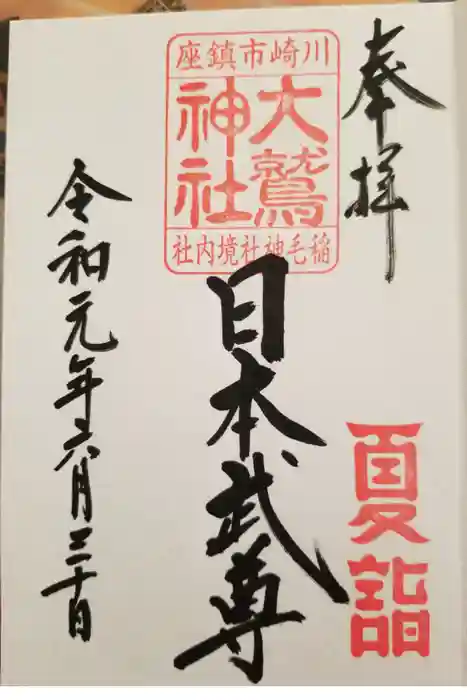 奉拝
夏詣
川崎市鎮座
大鷲
神社
稲毛神社境内社
日本武尊
令和元年六月三十日